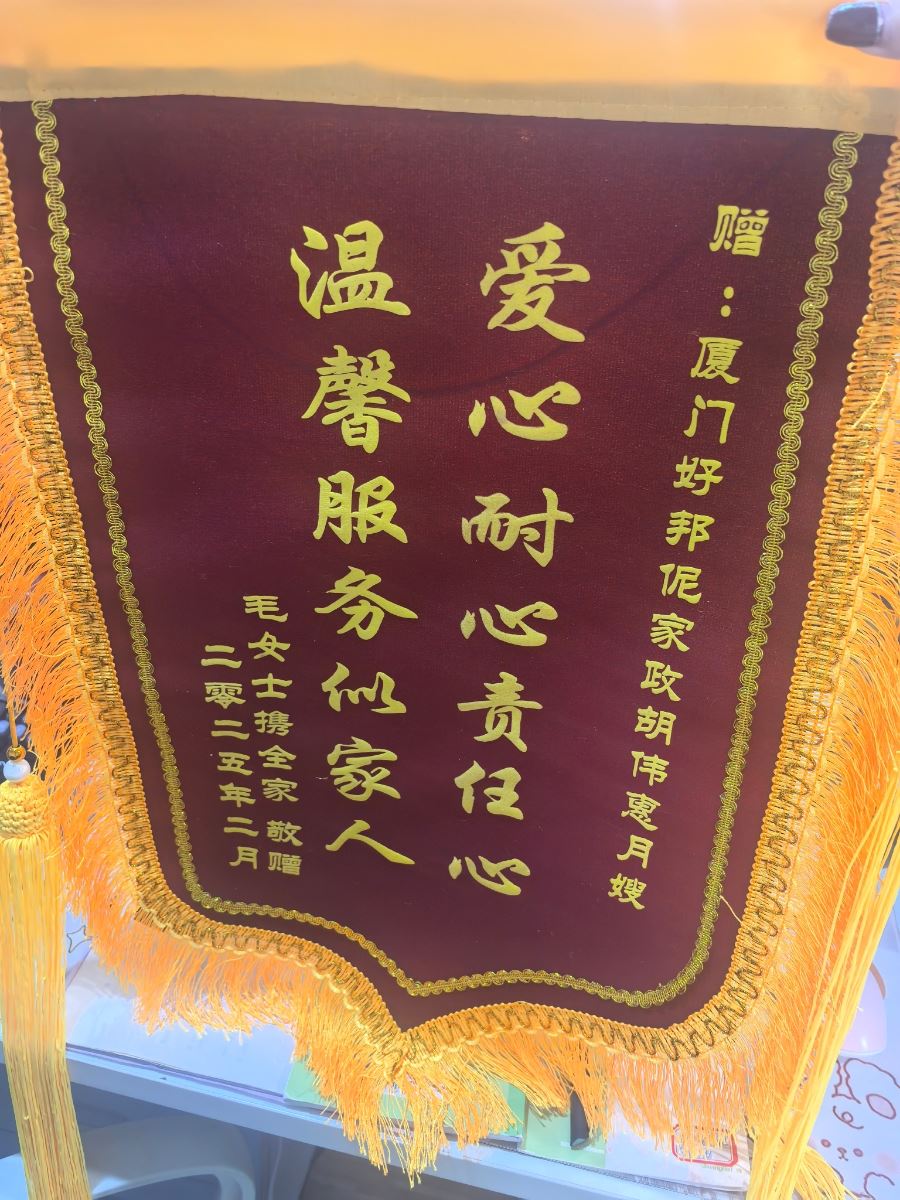 赠：厦门好邦伲家政胡伟惠月嫂
爱心耐心责任心
温馨服务似家人
毛女士携全家 敬赠
二零二五年二月